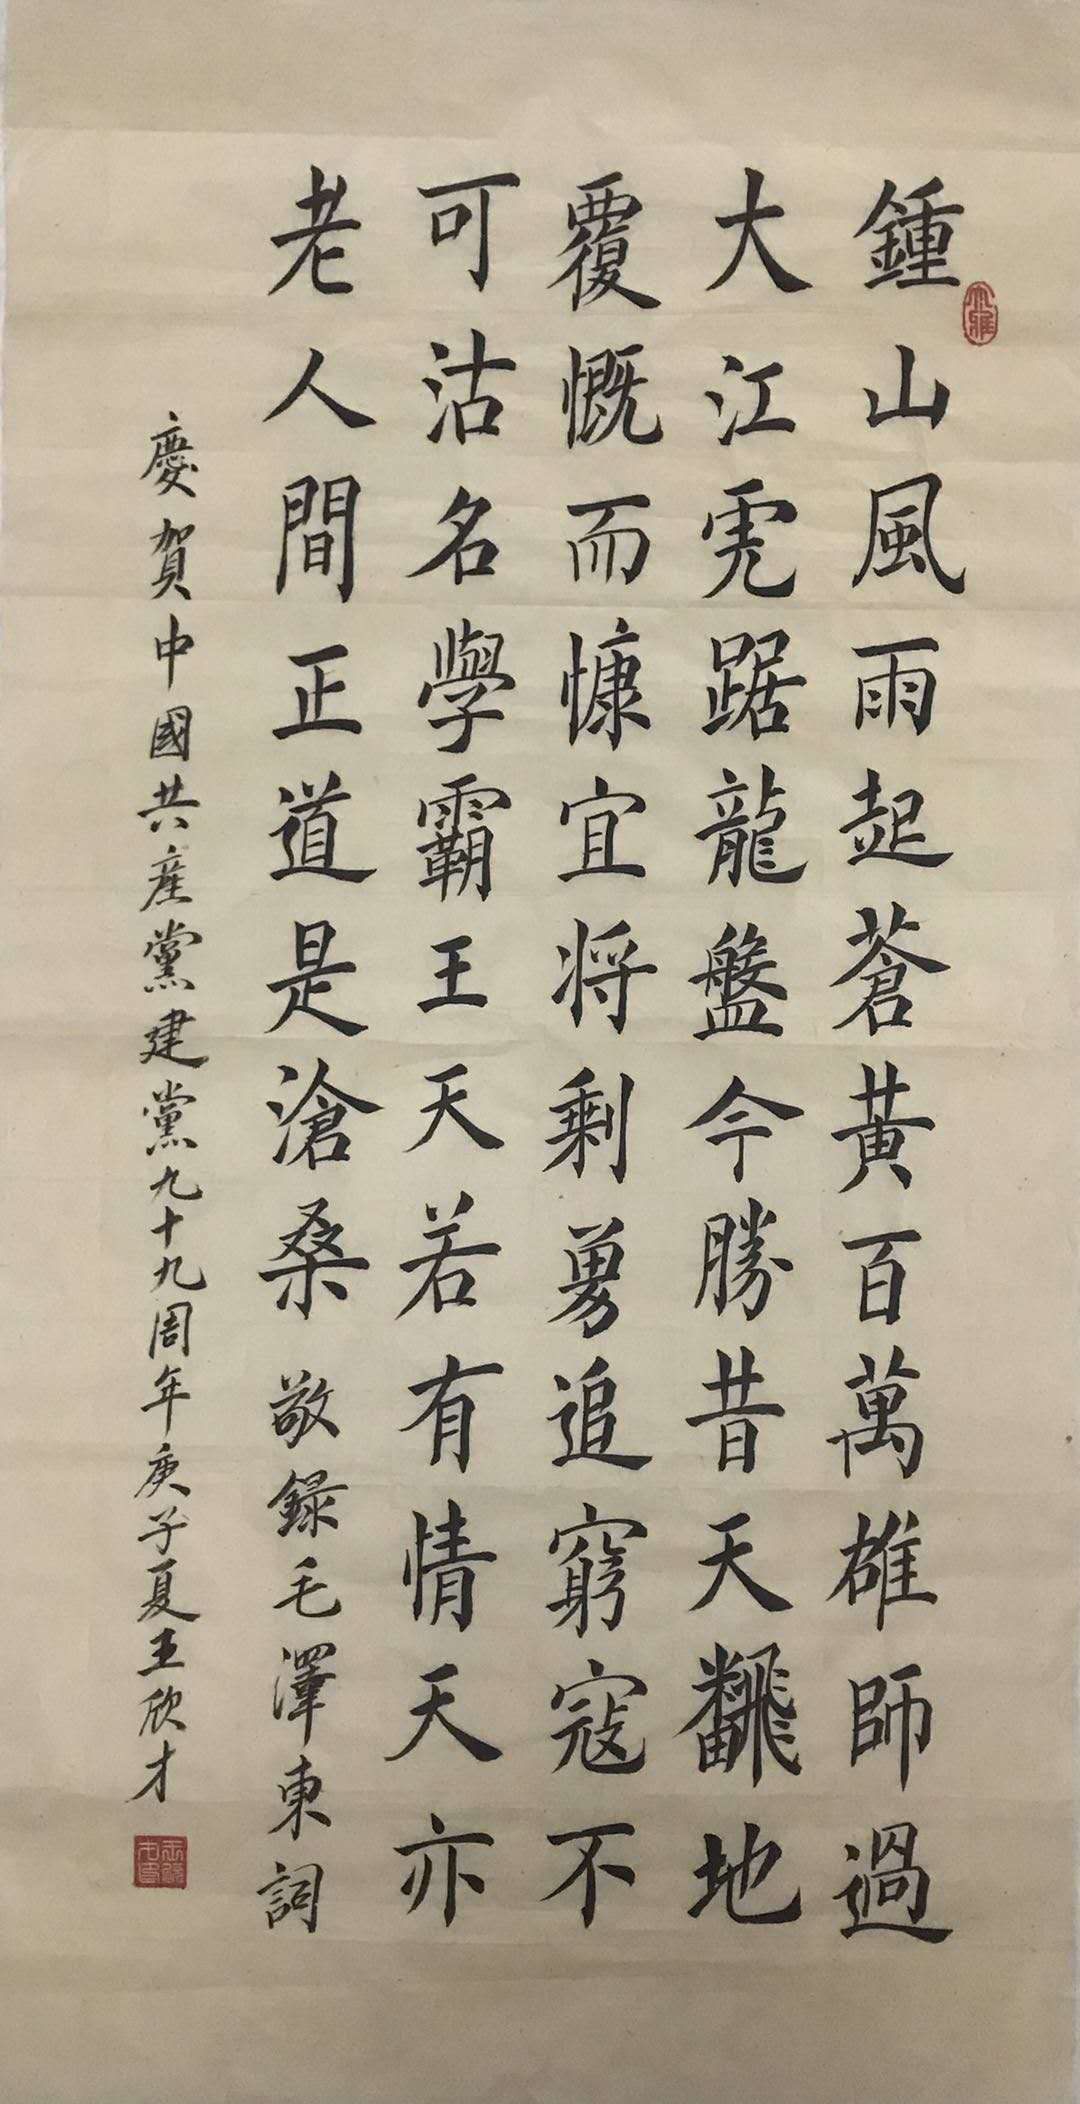 鍾山風雨起蒼黃百萬雄師過
大江虎踞龍盤今勝昔天飜地
覆慨而慷宜将剩勇追窮寇不
可沽名學霸王天若有情天亦
老人間正道是滄桑 敬録毛澤東詞
慶賀中國共產黨建黨九十九周年庚子夏王欣才